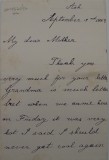 Ask.
September 1st 1882
My dear Mother.
Thank you
very much for your letter
Grandma is much better
but when we came here
on Friday it was very
hot I said I should
never get cool again